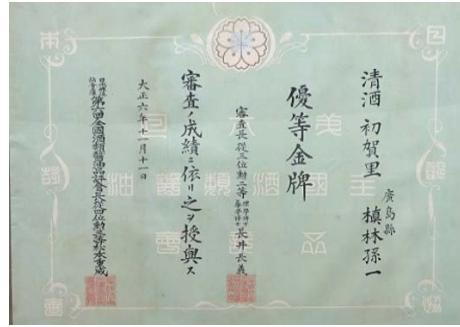 清酒 初賀里
廣島縣
槙林孫一
優等金牌
審査長從三位勲二等 理學博士 薬學博士 長井長義
審査ノ成績ニ依リ之ヲ授與ス
大正六年十一月十一日
第六回全國酒類醤油品評會長從四位勲三等杉本重威